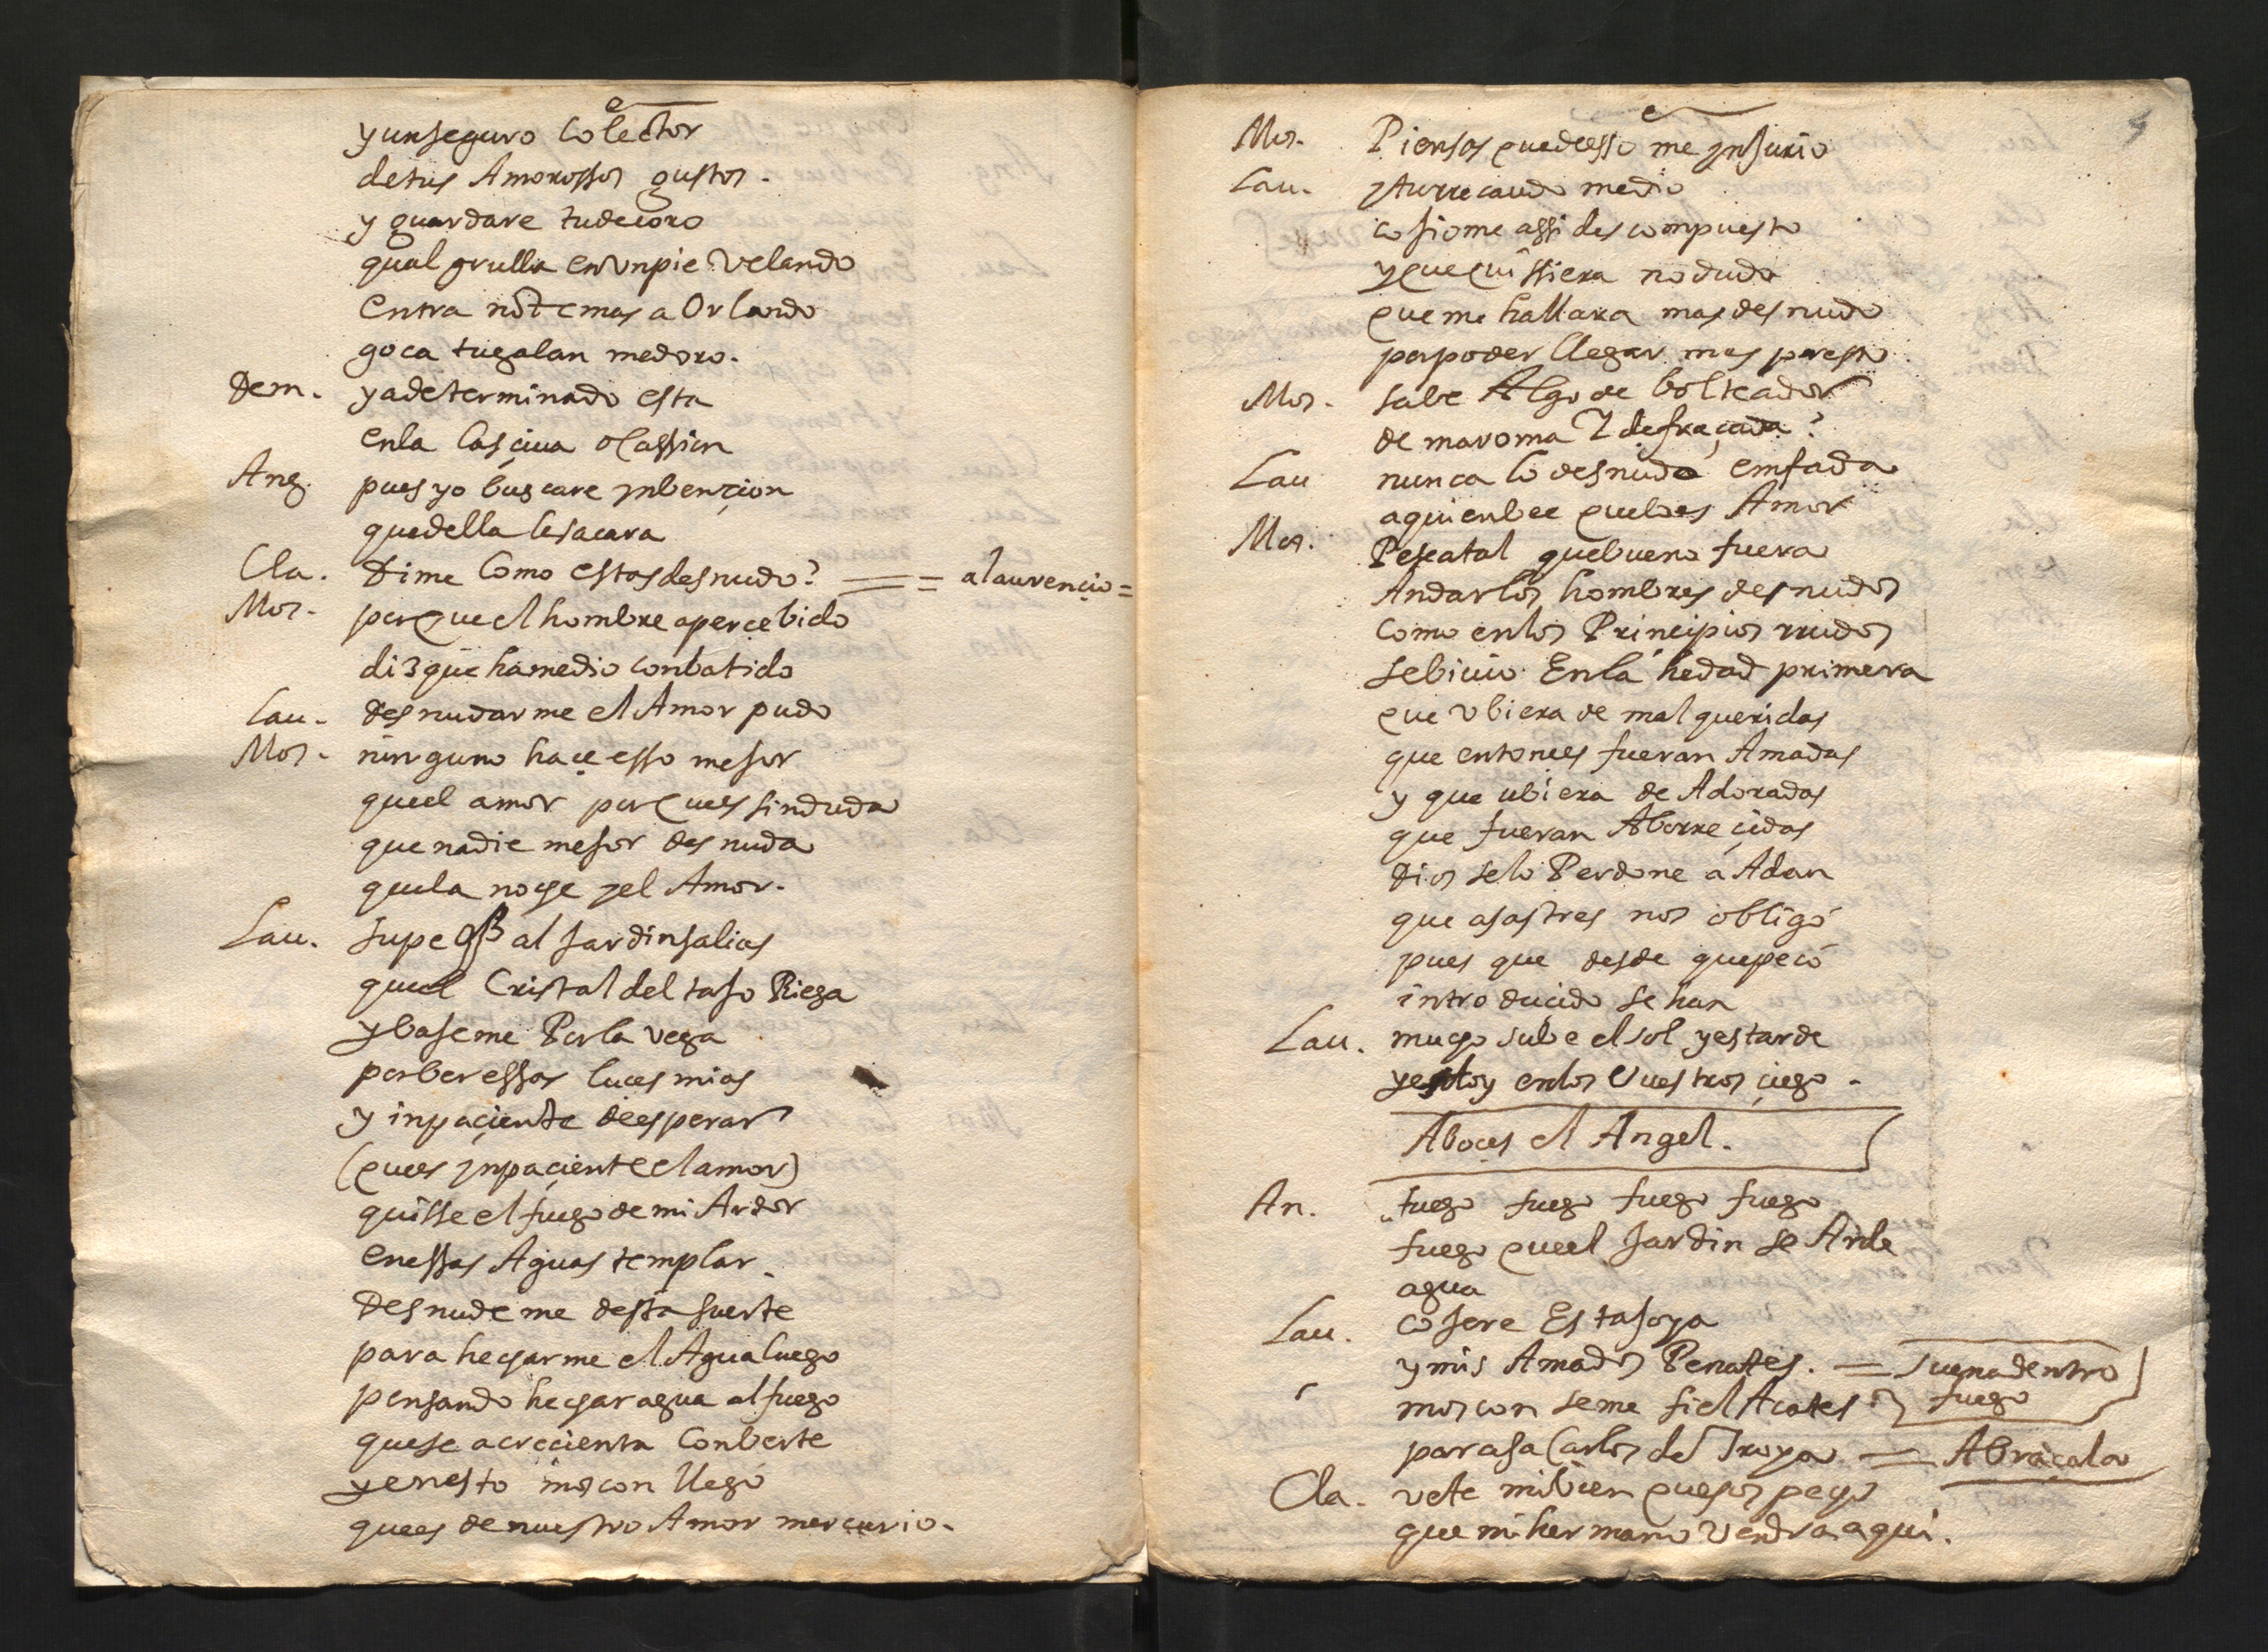 y un seguro Colector
de tus Amorossos gustos.
y guardare tu decoro
qual grulla en vn pie velando
entra no temas a Orlando
goça tu galan medoro.
Dem. ya determinado esta
en la lasçiua ocassion
Ang. pues yo buscare ynbençion
que della le sacara
Cla. Dime Como estas desnudo? == = a laurençio =
Mos. porque el hombre aperçebido
diz que ha medio conbatido
Lau. desnudarme el Amor pudo
Mos. ninguno haçe esso mejor
quel amor porques sin duda
que nadie mejor desnuda
que la noche y el Amor.
Lau. supe q al Jardin salias
quel Cristal del tajo Riega
y bajeme Por la vega
por ber essas luces mias
y inpaçiente de esperar
(ques ynpaçiente el amor)
quisse el fuego de mi Ardor
en essas Aguas templar.
Desnudeme desta suerte
para hecharme el Agua luego
pensando hechar agua al fuego
que se acrecienta Con berte
y en esto moscon llegó
que es de nuestro Amor mercurio.
Mos. Piensas que desso me ynjurio
Lau. y Aturrecando medio
cojiome assi descompuesto
y que quissiera no dudo
que me hallara mas desnudo
por poder llegar mas presto
Mos. sabe Algo de bolteador
de maroma
Lau nunca lo desnudo emfada
a quien bee quel es Amor
Mos. Pesia tal que bueno fuera
Andar los hombres desnudos
como en los Principios rrudos
se biuio En la hedad primera
que vbiera de mal queridas
que entonces fueran Amadas
y que ubiera de Adoradas
que fueran Aborreçidas
Dios se lo Perdone á Adan
que a sastres nos obligó
pues que desde que pecó
introduçido se han
Lau. mucho sube el sol y es tarde
y estoy en los vuestros çiego.
A boçes el Angel.
An. fuego fuego fuego fuego
fuego quel Jardin se Arde
agua
Lau. cojere Esta joya
y mis Amados Penates. = suena dentro
moscon seme fiel Acates fuego
para sacarlos de Troya = Abraçala
Cla. vete mi bien que sospecho
que mi hermano vendra aqui.